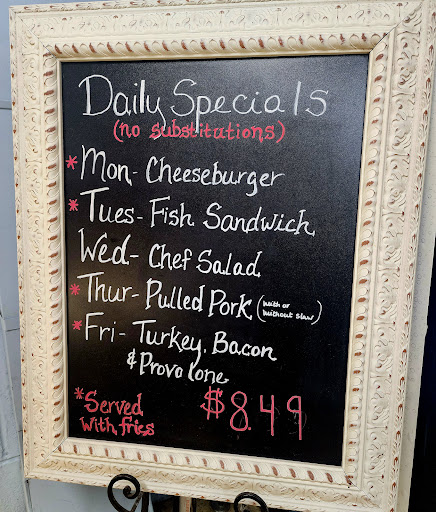 Daily Specials
(no substitations)
*Mon- Cheeseburger
*Tues- Fish Sandwich
Wed- Chef Salad
*Thur- Pulled Pork (with or
without slaw)
*Fri- Turkey, Bacon
& Provolone
*Served
with fries
$8.49